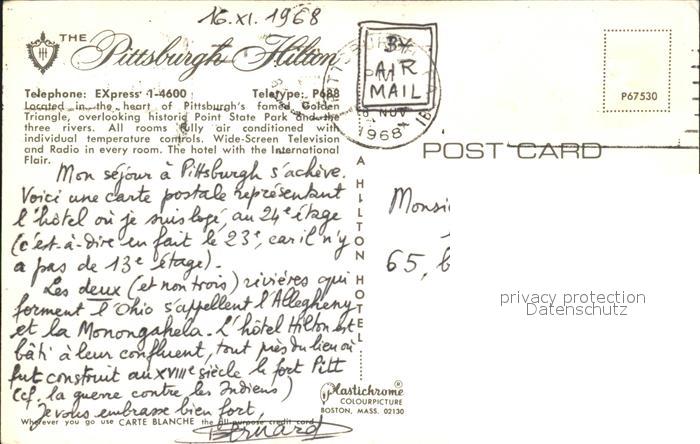 16.XI.1968
THE
Pittsburgh Hilton
Telephone: EXpress 1-4600 Teletype: P688
Located in the heart of Pittsburgh's famed Golden
Triangle, overlooking historic Point State Park and the
three rivers. All rooms fully air conditioned with
individual temperature controls. Wide-Screen Television
and Radio in every room. The hotel with the International
Flair.
Mon séjour à Pittsburgh s'achève.
Voici une carte postale représentant
l'hôtel où je suis logé, au 24e étage
(c'est-à-dire en fait le 23e, car il n'y
a pas de 13e étage).
Les deux (et non trois) rivières qui
forment l'Ohio s'appellent l'Allegheny
et la Monongahela. L'hôtel Hilton est
bâti à leur confluent, tout près du lieu où
fut construit au XVIIIe siècle le fort Pitt
(cf. la guerre contre les Indiens)
Je vous embrasse bien fort,
Bernard
Wherever you go use CARTE BLANCHE the all-purpose credit card
A HILTON HOTEL
BY
AIR
MAIL
NOV
1968
P67530
POST CARD
Monsi
65,
privacy protection
Datenschutz
Plastichrome®
COLOURPICTURE
BOSTON, MASS. 02130